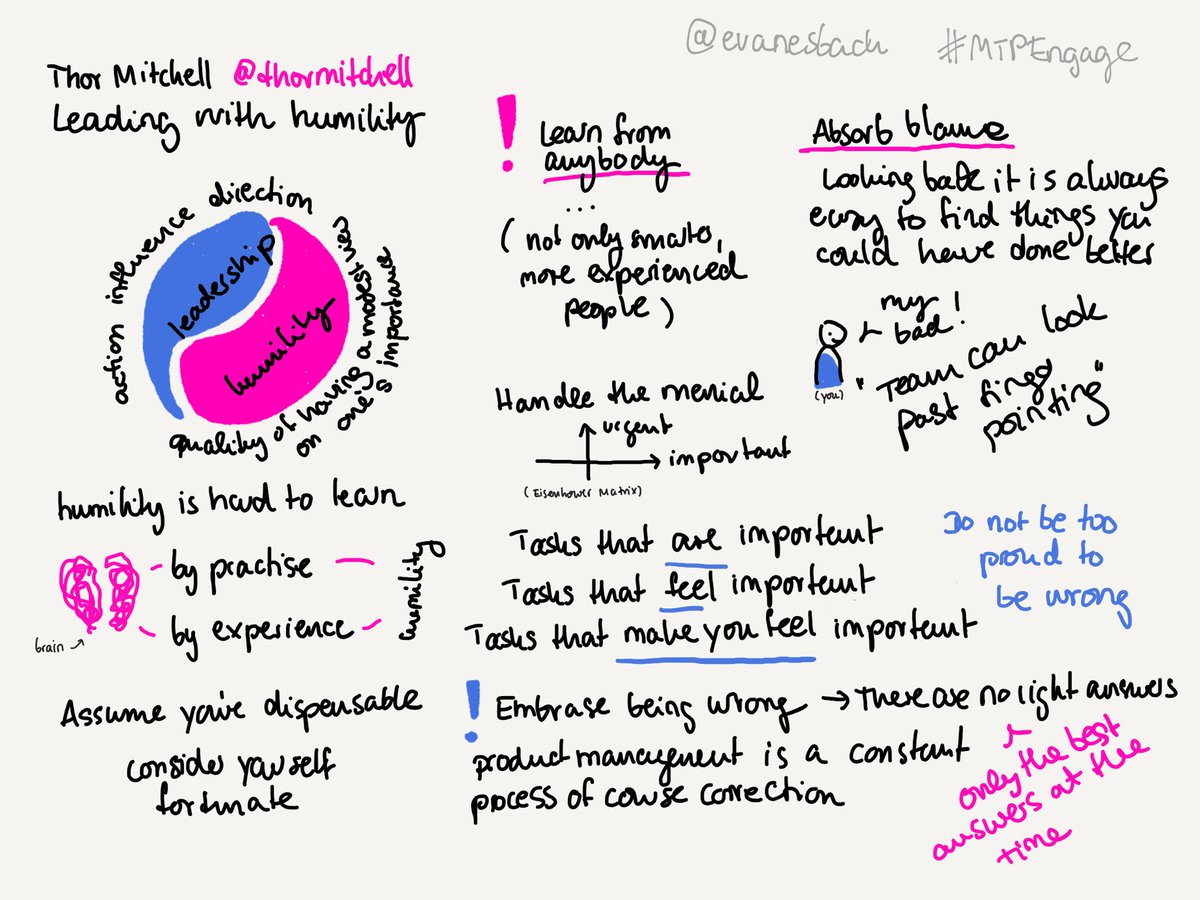 @evanesbach #MTPEngage
Thor Mitchell @thormitchell
Leading with humility
action influence direction
leadership
humility
quality of having a modest view
on one's importance
humility is hard to learn
by practise
by experience
humility
brain
Assume you're dispensable
consider yourself
fortunate
! Learn from
anybody
...
(not only smarter,
more experienced
people)
Handle the menial
urgent
important
(Eisenhower Matrix)
Tasks that are important
Tasks that feel important
Tasks that make you feel important
! Embrase being wrong → There are no right answers
only the best
answers at the
time
product management is a constant
process of course correction
Absorb blame
Looking back it is always
easy to find things you
could have done better
my
bad!
(you)
"Team can look
past finger
pointing"
Do not be too
proud to
be wrong